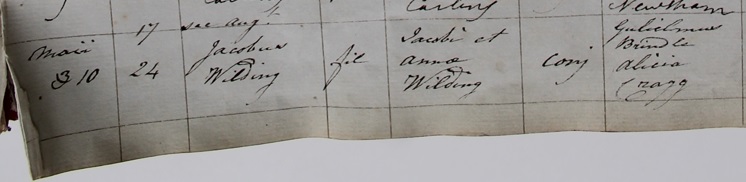 Carling Newsham
17 see Augt
Maii Jacobus Jacobi et Gulielmus
Brindle
& 10 24 Wilding fil Annæ conj Alicia
Wilding Cragg